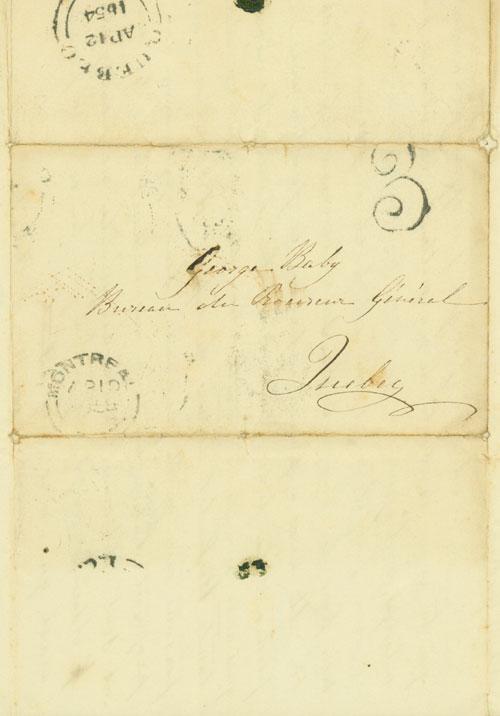 QUEBEC
AP 12
1854
3
George Baby
Bureau du Procureur Général
Quebec
MONTREAL
AP 10